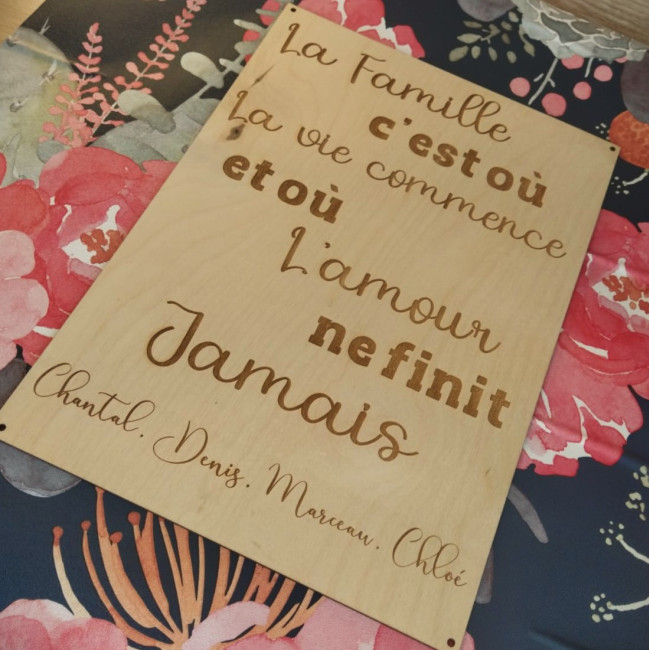 La Famille
c'est où
La vie commence
et où
L'amour
ne finit
Jamais
Chantal, Denis, Marceau, Chloé